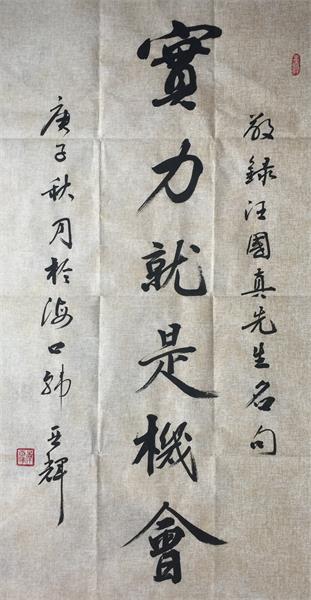 敬録汪國真先生名句
實力就是機會
庚子秋月於海口韓亚輝